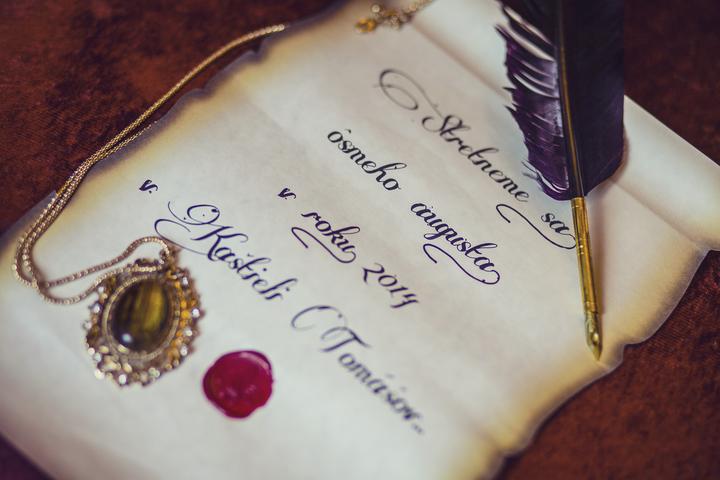 Stretneme sa
ôsmeho augusta
v roku 2014
v Kaštieli Tomášov...